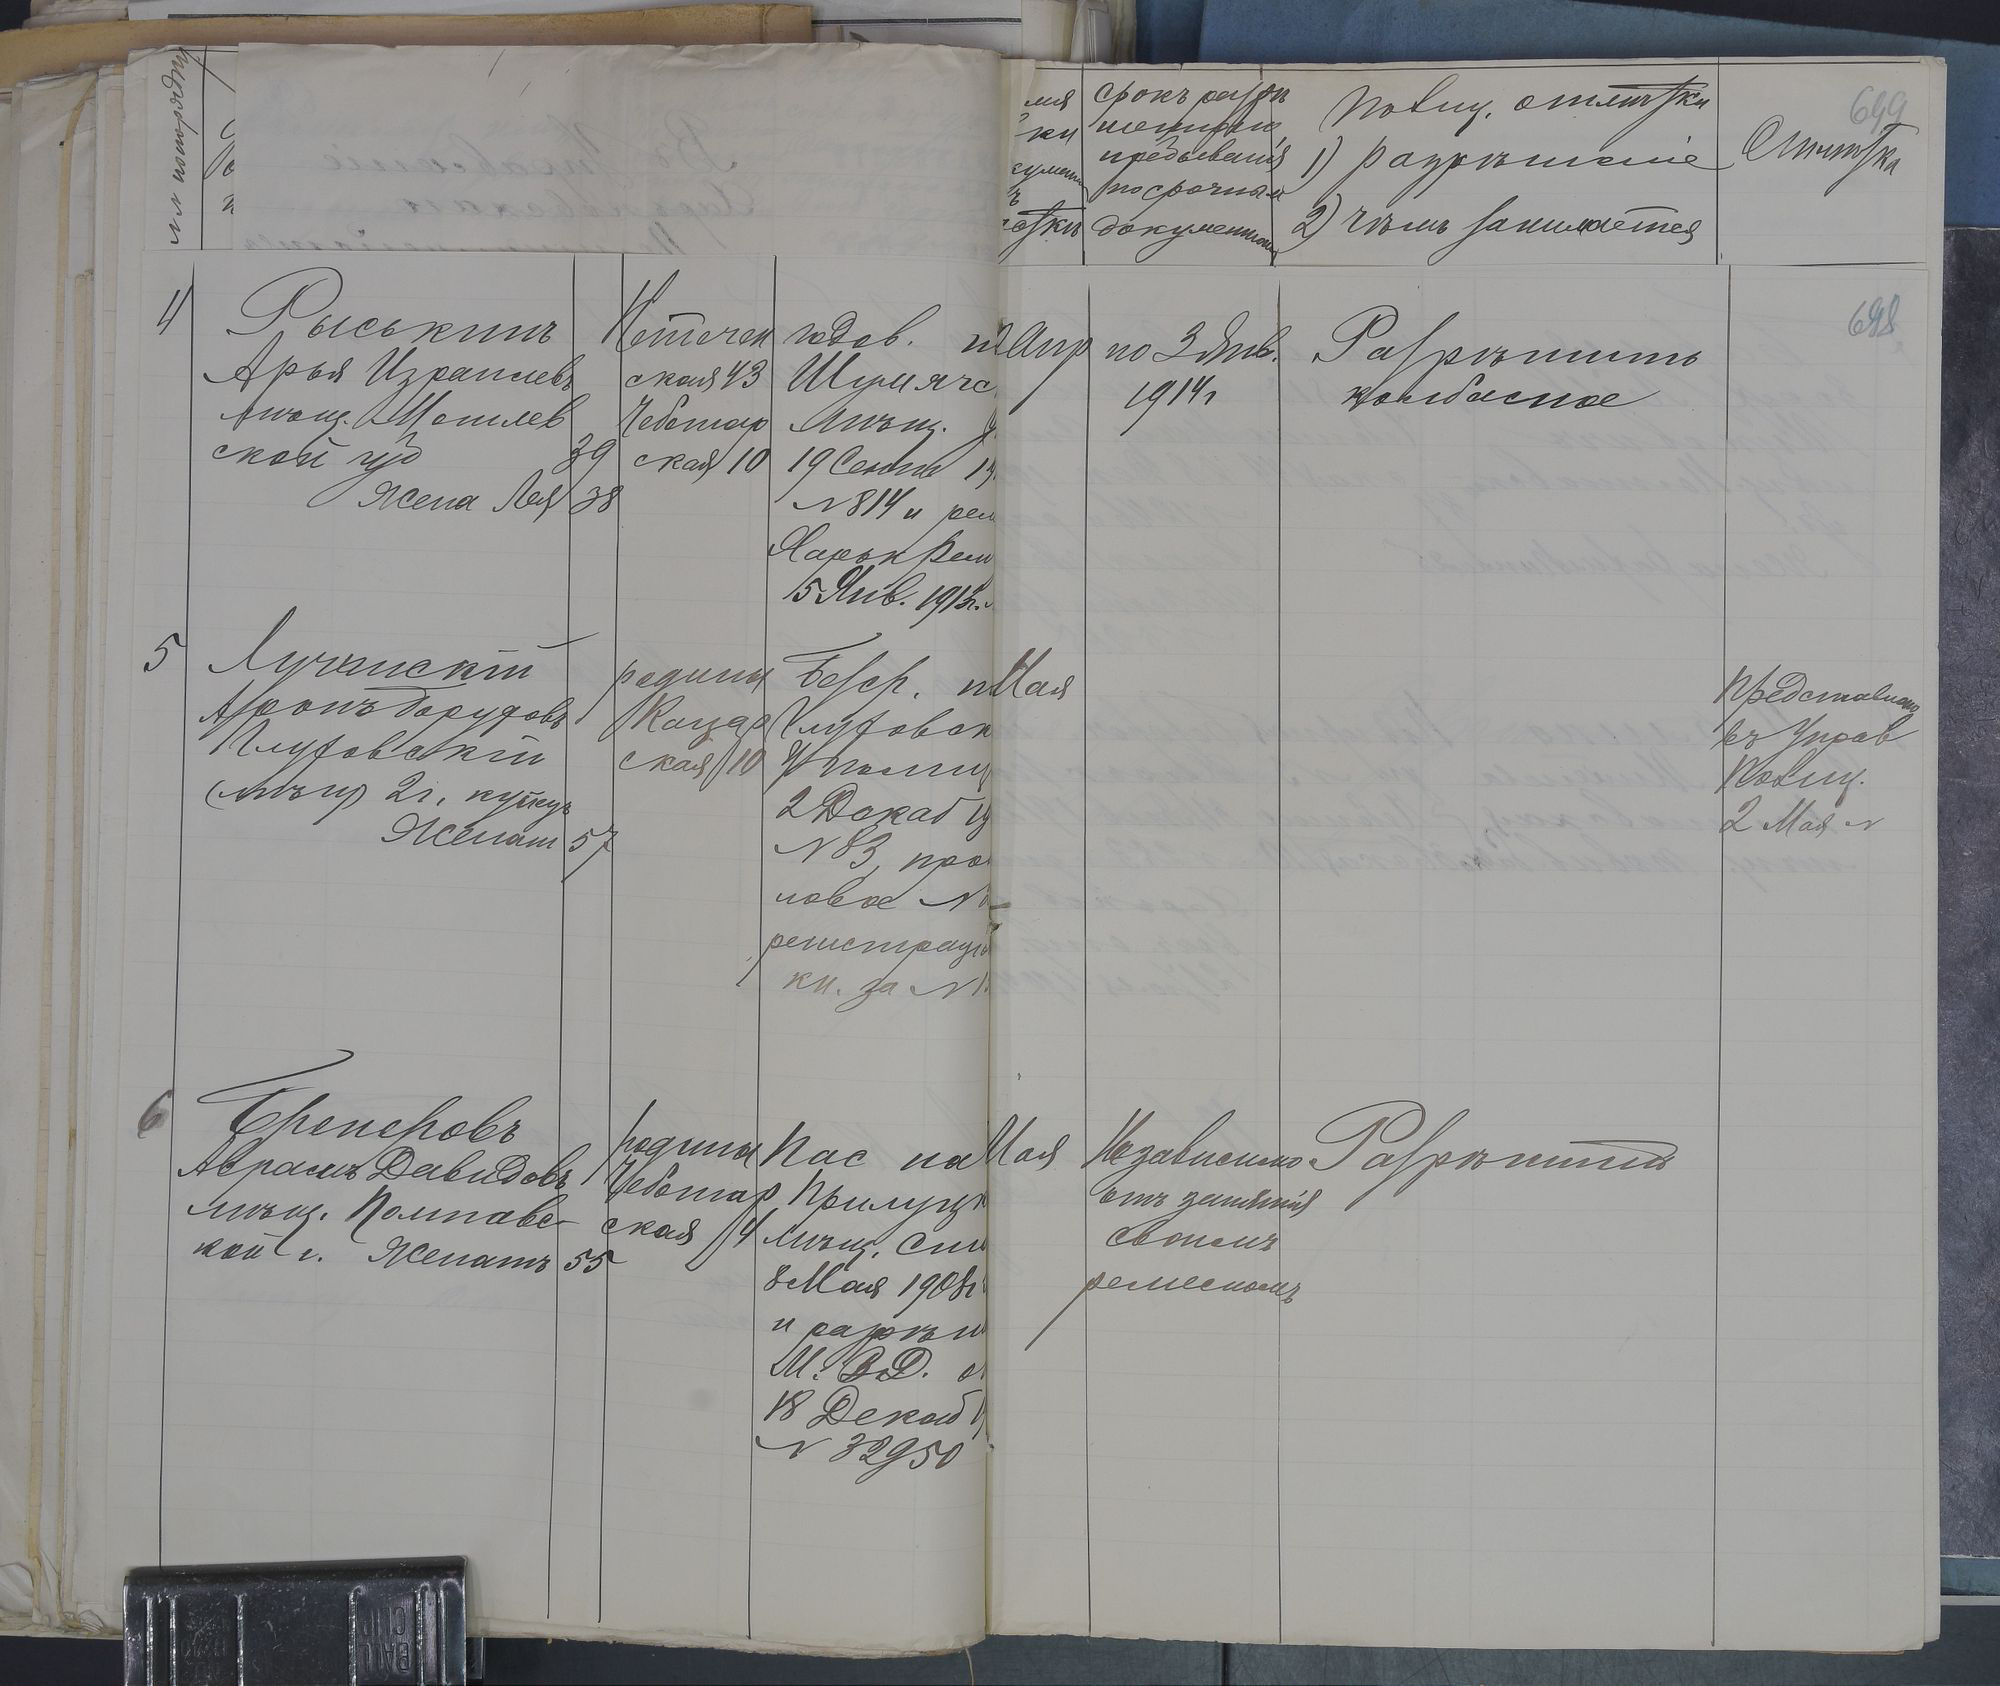 №№ по порядку
срокъ разрѣ
шеннаго
пребыванія
по срочнымъ
документамъ
Полиц. отмѣтки
1) разрѣшеніе
2) Чѣмъ занимается
699
Отмѣтка
698
4
Рыськинъ
Арья Израилевъ
мѣщ. Могилев
ской губ 39
Жена Лея 38
ская 43
Чеботар
ская 10
годов.
Шумячс
Мѣщ. у
19 Сент 19
№ 814 и рем
Харьк Рем
5 Янв. 1913г.
Апр
по 3 Янв.
1914г
Разрѣшить
колбасное
5
Аронъ Боруховъ
Глуховскій
(мѣщ) 2 г. купецъ
Женат 57
родина
Кацар
ская 10
Безср.
Глуховск
Управлиц
2 Декаб 19
№ 83, про
ловое №
регистрац
кн. за № 1
Мая
Представлено
въ Управ
Полиц.
2 Мая №
6
Авраамъ Давидовъ
мѣщ. Полтавс-
кой г. Женатъ 55
родина
Чеботар
ская 14
Пас на
Прилуцк
Мѣщ. Ст
8 Мая 1908г
и разрѣш
М. В. Д. о
18 Декаб 19
№ 32950
Мая
Независимо
отъ занятія
своимъ
ремесломъ
Разрѣшить